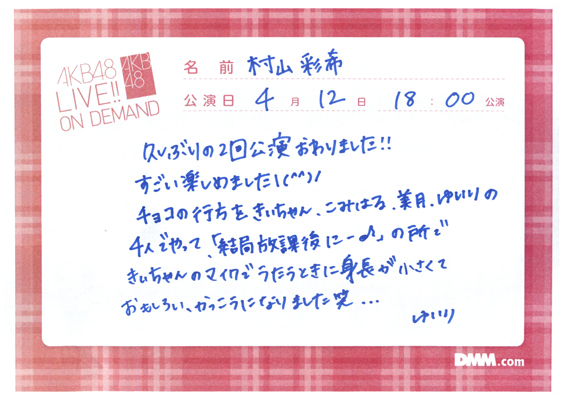 AKB48
LIVE!!
ON DEMAND
AKB
48
名 前 村山 彩希
公演日 4 月 12 日 18 : 00 公演
久しぶりの2回公演おわりました!!
すごい楽しめました\(^^)/
チョコの行方をきぃちゃん、こみはる、美月、ゆいりの
4人でやって、「結局放課後にー♪」の所で
きぃちゃんのマイクでうたうときに身長が小さくて
おもしろい、かっこうになりました笑...
ゆいり
DMM.com